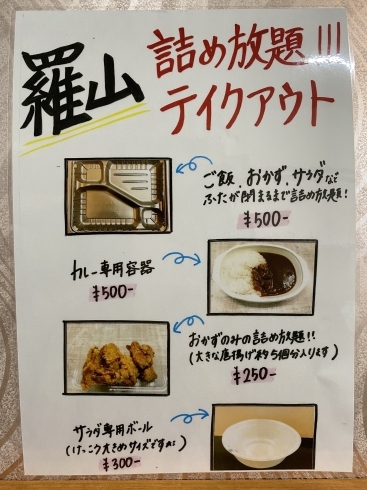 羅山
詰め放題!!!
テイクアウト
ご飯、おかず、サラダなど
ふたが閉まるまで詰め放題!
¥500-
カレー専用容器
¥500-
おかずのみの詰め放題!!
(大きな唐揚げ約5個分入ります)
¥250-
サラダ専用ボール
(けっこう大きめサイズです
¥300-